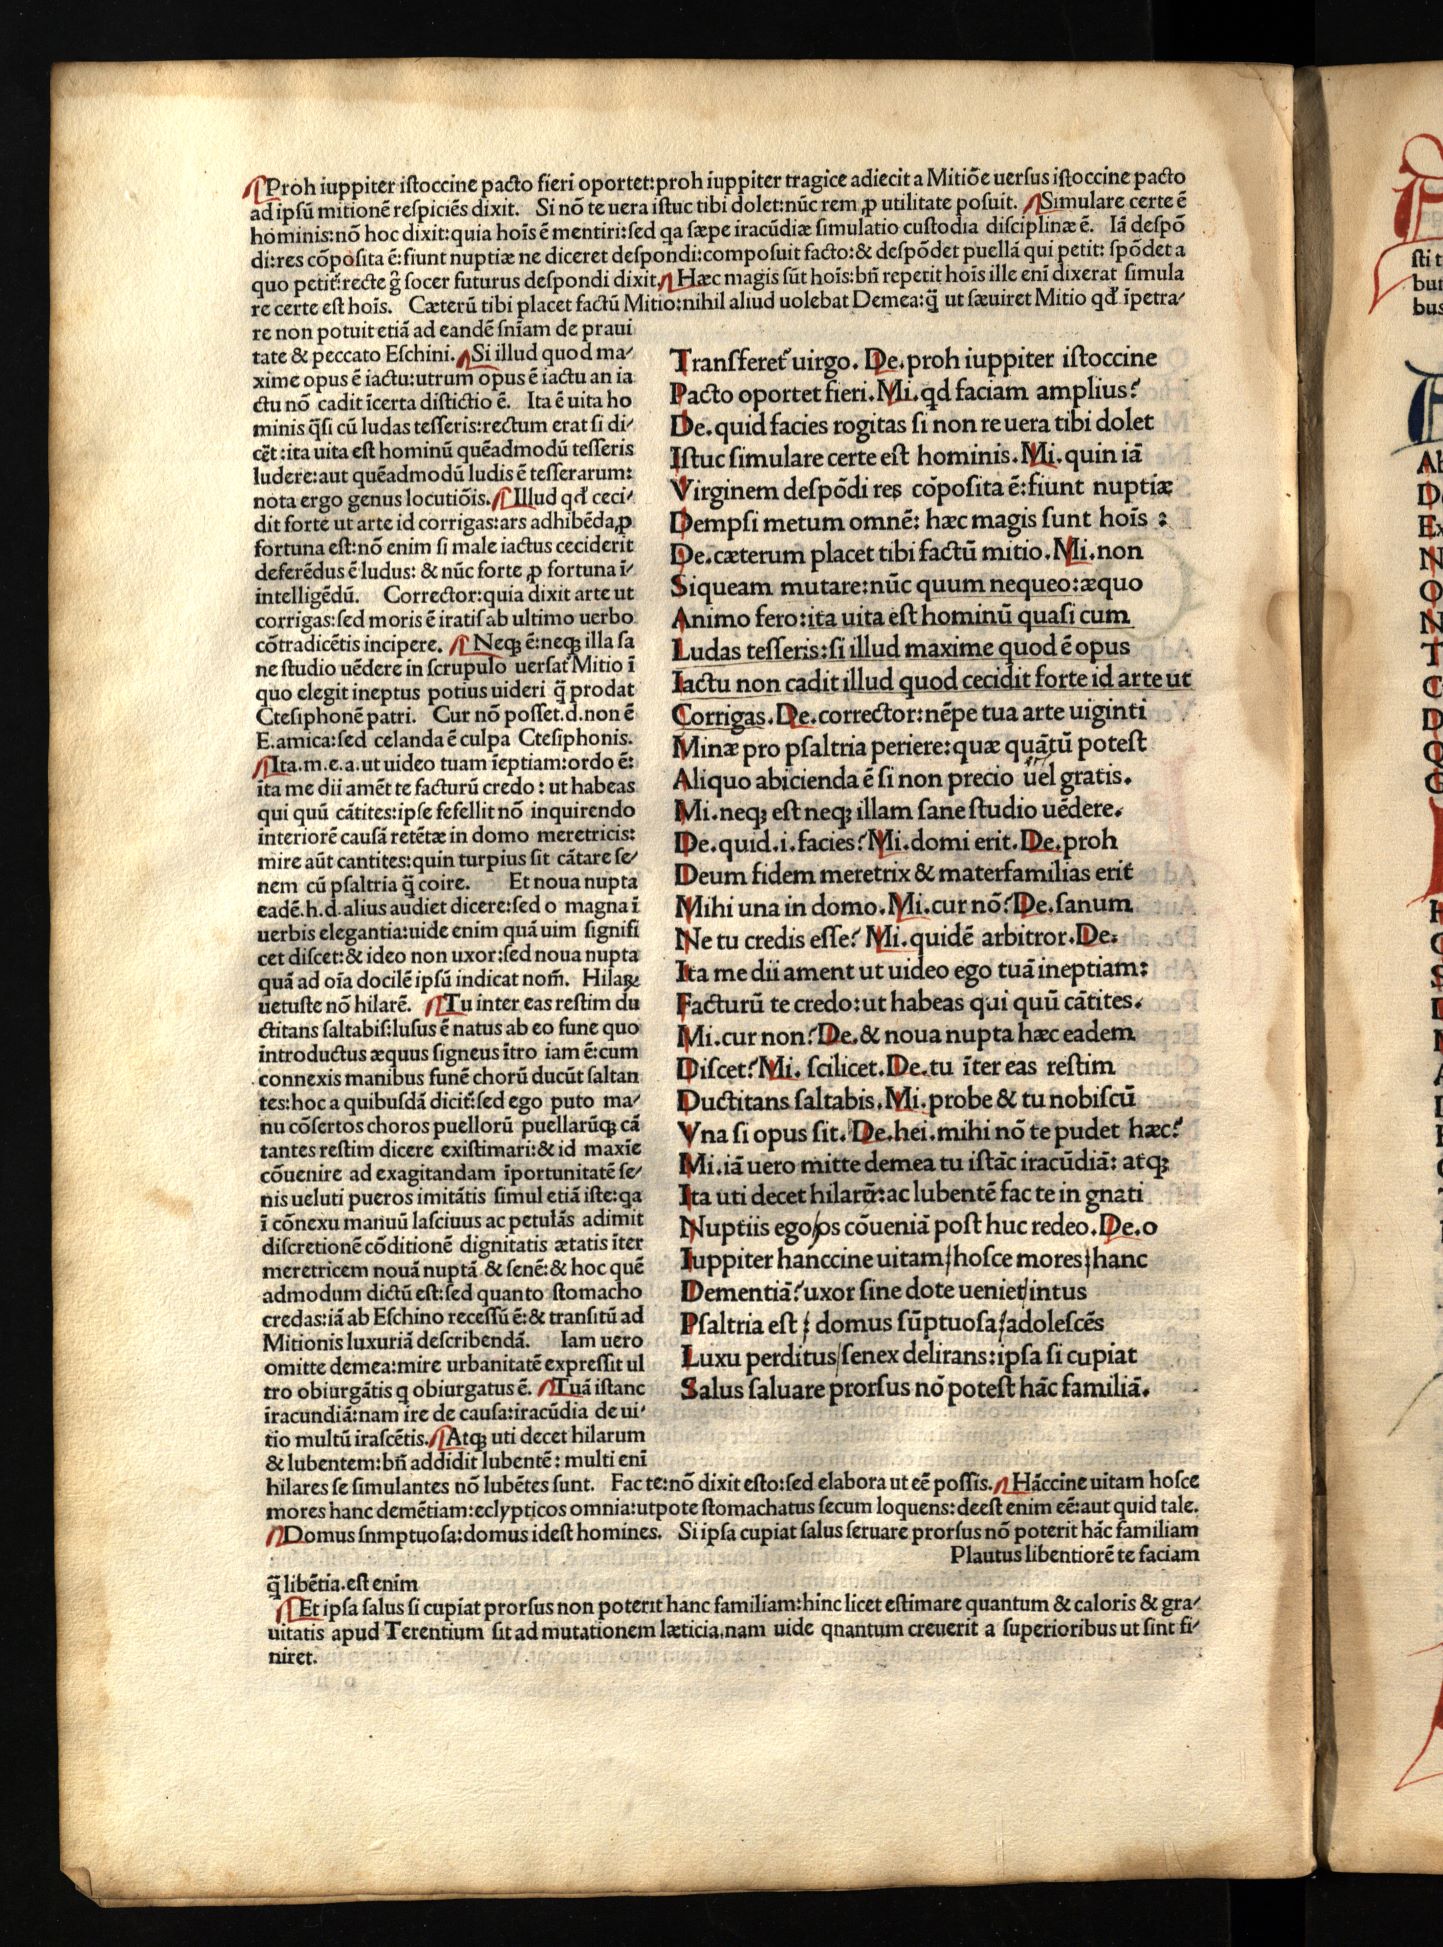 ¶Proh iuppiter istoccine pacto fieri oportet:proh iuppiter tragice adiecit a Mitiōe uersus istoccine pacto
ad ipsū mitionē respiciēs dixit. Si nō te uera istuc tibi dolet:nūc rem ꝓ utilitate posuit. ¶Simulare certe ē
hominis:nō hoc dixit:quia hoīs ē mentiri:sed qa sæpe iracūdiæ simulatio custodia disciplinæ ē. Iā despō
di:res cōposita ē:fiunt nuptiæ ne diceret despondi:composuit facto:& despōdet puellā qui petit: spōdet a
quo petit᷑:recte g̃ socer futurus despondi dixit. ¶Hæc magis sūt hoīs:bñ repetit hoīs ille enī dixerat simula
re certe est hoīs. Cæterū tibi placet factū Mitio:nihil aliud uolebat Demea:q̄ ut sæuiret Mitio qd̓ īpetra⸗
re non potuit etiā ad eandē sn̄iam de praui
tate & peccato Eschini. ¶Si illud quod ma⸗
xime opus ē iactu:utrum opus ē iactu an ia
ctu nō cadit īcerta distictio ē. Ita ē uita ho
minis q̄si cū ludas tesseris:rectum erat si di⸗
cēt :ita uita est hominū quēadmodū tesseris
ludere:aut quēadmodū ludis ē tesserarum:
nota ergo genus locutiōis. ¶Illud qd̓ ceci⸗
dit forte ut arte id corrigas:ars adhibēda,ꝓ
fortuna est:nō enim si male iactus ceciderit
deferēdus ē ludus: & nūc forte ꝓ fortuna ī⸗
intelligēdū. Corrector:quia dixit arte ut
corrigas:sed moris ē iratis ab ultimo uerbo
cōtradicētis incipere. ¶Neqꝫ ē:neqꝫ illa sa
ne studio uēdere in scrupulo uersat᷑ Mitio ī
quo elegit ineptus potius uideri q̄ prodat
Ctesiphonē patri. Cur nō posset.d.non ē
E.amica:sed celanda ē culpa Ctesiphonis.
¶Ita.m.e.a.ut uideo tuam īeptiam:ordo ē:
ita me dii amēt te facturū credo : ut habeas
qui quū cātites:ipse fefellit nō inquirendo
interiorē causā retētæ in domo meretricis:
mire aūt cantites:quin turpius sit cātare se⸗
nem cū psaltria q̄ coire. Et noua nupta
eadē.h.d.alius audiet dicere:sed o magna ī
uerbis elegantia:uide enim quā uim signifi
cet discet:& ideo non uxor:sed noua nupta
quā ad oīa docilē ipsū indicat nom̄. Hilaꝝ
uetuste nō hilarē. ¶Tu inter eas restim du
ctitans saltabis:lusus ē natus ab eo fune quo
introductus æquus ligneus ītro iam ē:cum
connexis manibus funē chorū ducūt saltan
tes:hoc a quibusdā dicit᷑:sed ego puto ma⸗
nu cōsertos choros puellorū puellarūqꝫ cā
tantes restim dicere existimari:& id maxīe
cōuenire ad exagitandam īportunitatē se⸗
nis ueluti pueros imitātis simul etiā iste:qa
ī cōnexu manuū lasciuus ac petulās adimit
discretionē cōditionē dignitatis ætatis īter
meretricem nouā nuptā & senē:& hoc quē
admodum dictū est:sed quanto stomacho
credas:iā ab Eschino recessū ē:& transitū ad
Mitionis luxuriā describendā. Iam uero
omitte demea:mire urbanitatē expressit ul
tro obiurgātis q obiurgatus ē. ¶Tuā istanc
iracundiā:nam ire de causa:iracūdia de ui⸗
tio multū irascētis. ¶Atqꝫ uti decet hilarum
& lubentem:bñ addidit lubentē : multi enī
hilares se simulantes nō lubētes sunt. Fac te:nō dixit esto:sed elabora ut eē possis. ¶Hāccine uitam hosce
mores hanc demētiam:eclypticos omnia:utpote stomachatus secum loquens: deest enim eē:aut quid tale.
¶Domus snmptuosa:domus idest homines. Si ipsa cupiat salus seruare prorsus nō poterit hāc familiam
Plautus libentiorē te faciam
q̄ libētia.est enim
¶Et ipsa salus si cupiat prorsus non poterit hanc familiam:hinc licet estimare quantum & caloris & gra⸗
uitatis apud Terentium sit ad mutationem læticia.nam uide qnantum creuerit a superioribus ut sint fi⸗
niret.
Transferet᷑ uirgo. De.proh iuppiter istoccine
Pacto oportet fieri.Mi.qd faciam amplius?
De.quid facies rogitas si non re uera tibi dolet
Istuc simulare certe est hominis.Mi.quin iā
Virginem despōdi res cōposita ē:fiunt nuptiæ
Dempsi metum omnē: hæc magis sunt hoīs :
De.cæterum placet tibi factū mitio.Mi.non
Siqueam mutare:nūc quum nequeo:æquo
Animo fero:ita uita est hominū quasi cum
Ludas tesseris:si illud maxime quod ē opus
Iactu non cadit illud quod cecidit forte id arte ut
Corrigas.De.corrector:nēpe tua arte uiginti
Minæ pro psaltria periere:quæ quātū potest
Aliquo abicienda ē si non precio uel gratis.
Mi.neqꝫ est neqꝫ illam sane studio uēdere.
De.quid.i.facies?Mi.domi erit.De.proh
Deum fidem meretrix & materfamilias erit
Mihi una in domo.Mi.cur nō?De.sanum
Ne tu credis esse? Mi.quidē arbitror.De.
Ita me dii ament ut uideo ego tuā ineptiam:
Facturū te credo:ut habeas qui quū cātites.
Mi.cur non?De.& noua nupta hæc eadem
Discet?Mi. scilicet.De.tu īter eas restim
Ductitans saltabis.Mi.probe & tu nobiscū
Vna si opus sit.De.hei.mihi nō te pudet hæc?
Mi.iā uero mitte demea tu istāc iracūdiā: atqꝫ
Ita uti decet hilarū:ac lubentē fac te in gnati
Nuptiis ego/os cōueniā post huc redeo.De.o
Iuppiter hanccine uitam/hosce mores/hanc
Dementiā?uxor sine dote ueniet/intus
Psaltria est / domus sūptuosa/adolescēs
Luxu perditus/senex delirans:ipsa si cupiat
Salus saluare prorsus nō potest hāc familiā.